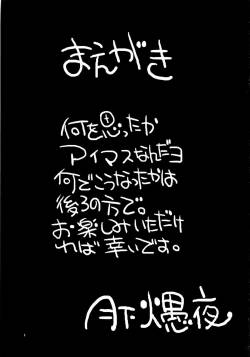 まえがき
何を思ったか
アイマスなんだヨ
何でこうなったかは
後ろの方で。
お楽しみいただけ
れば幸いです。
月下爆夜